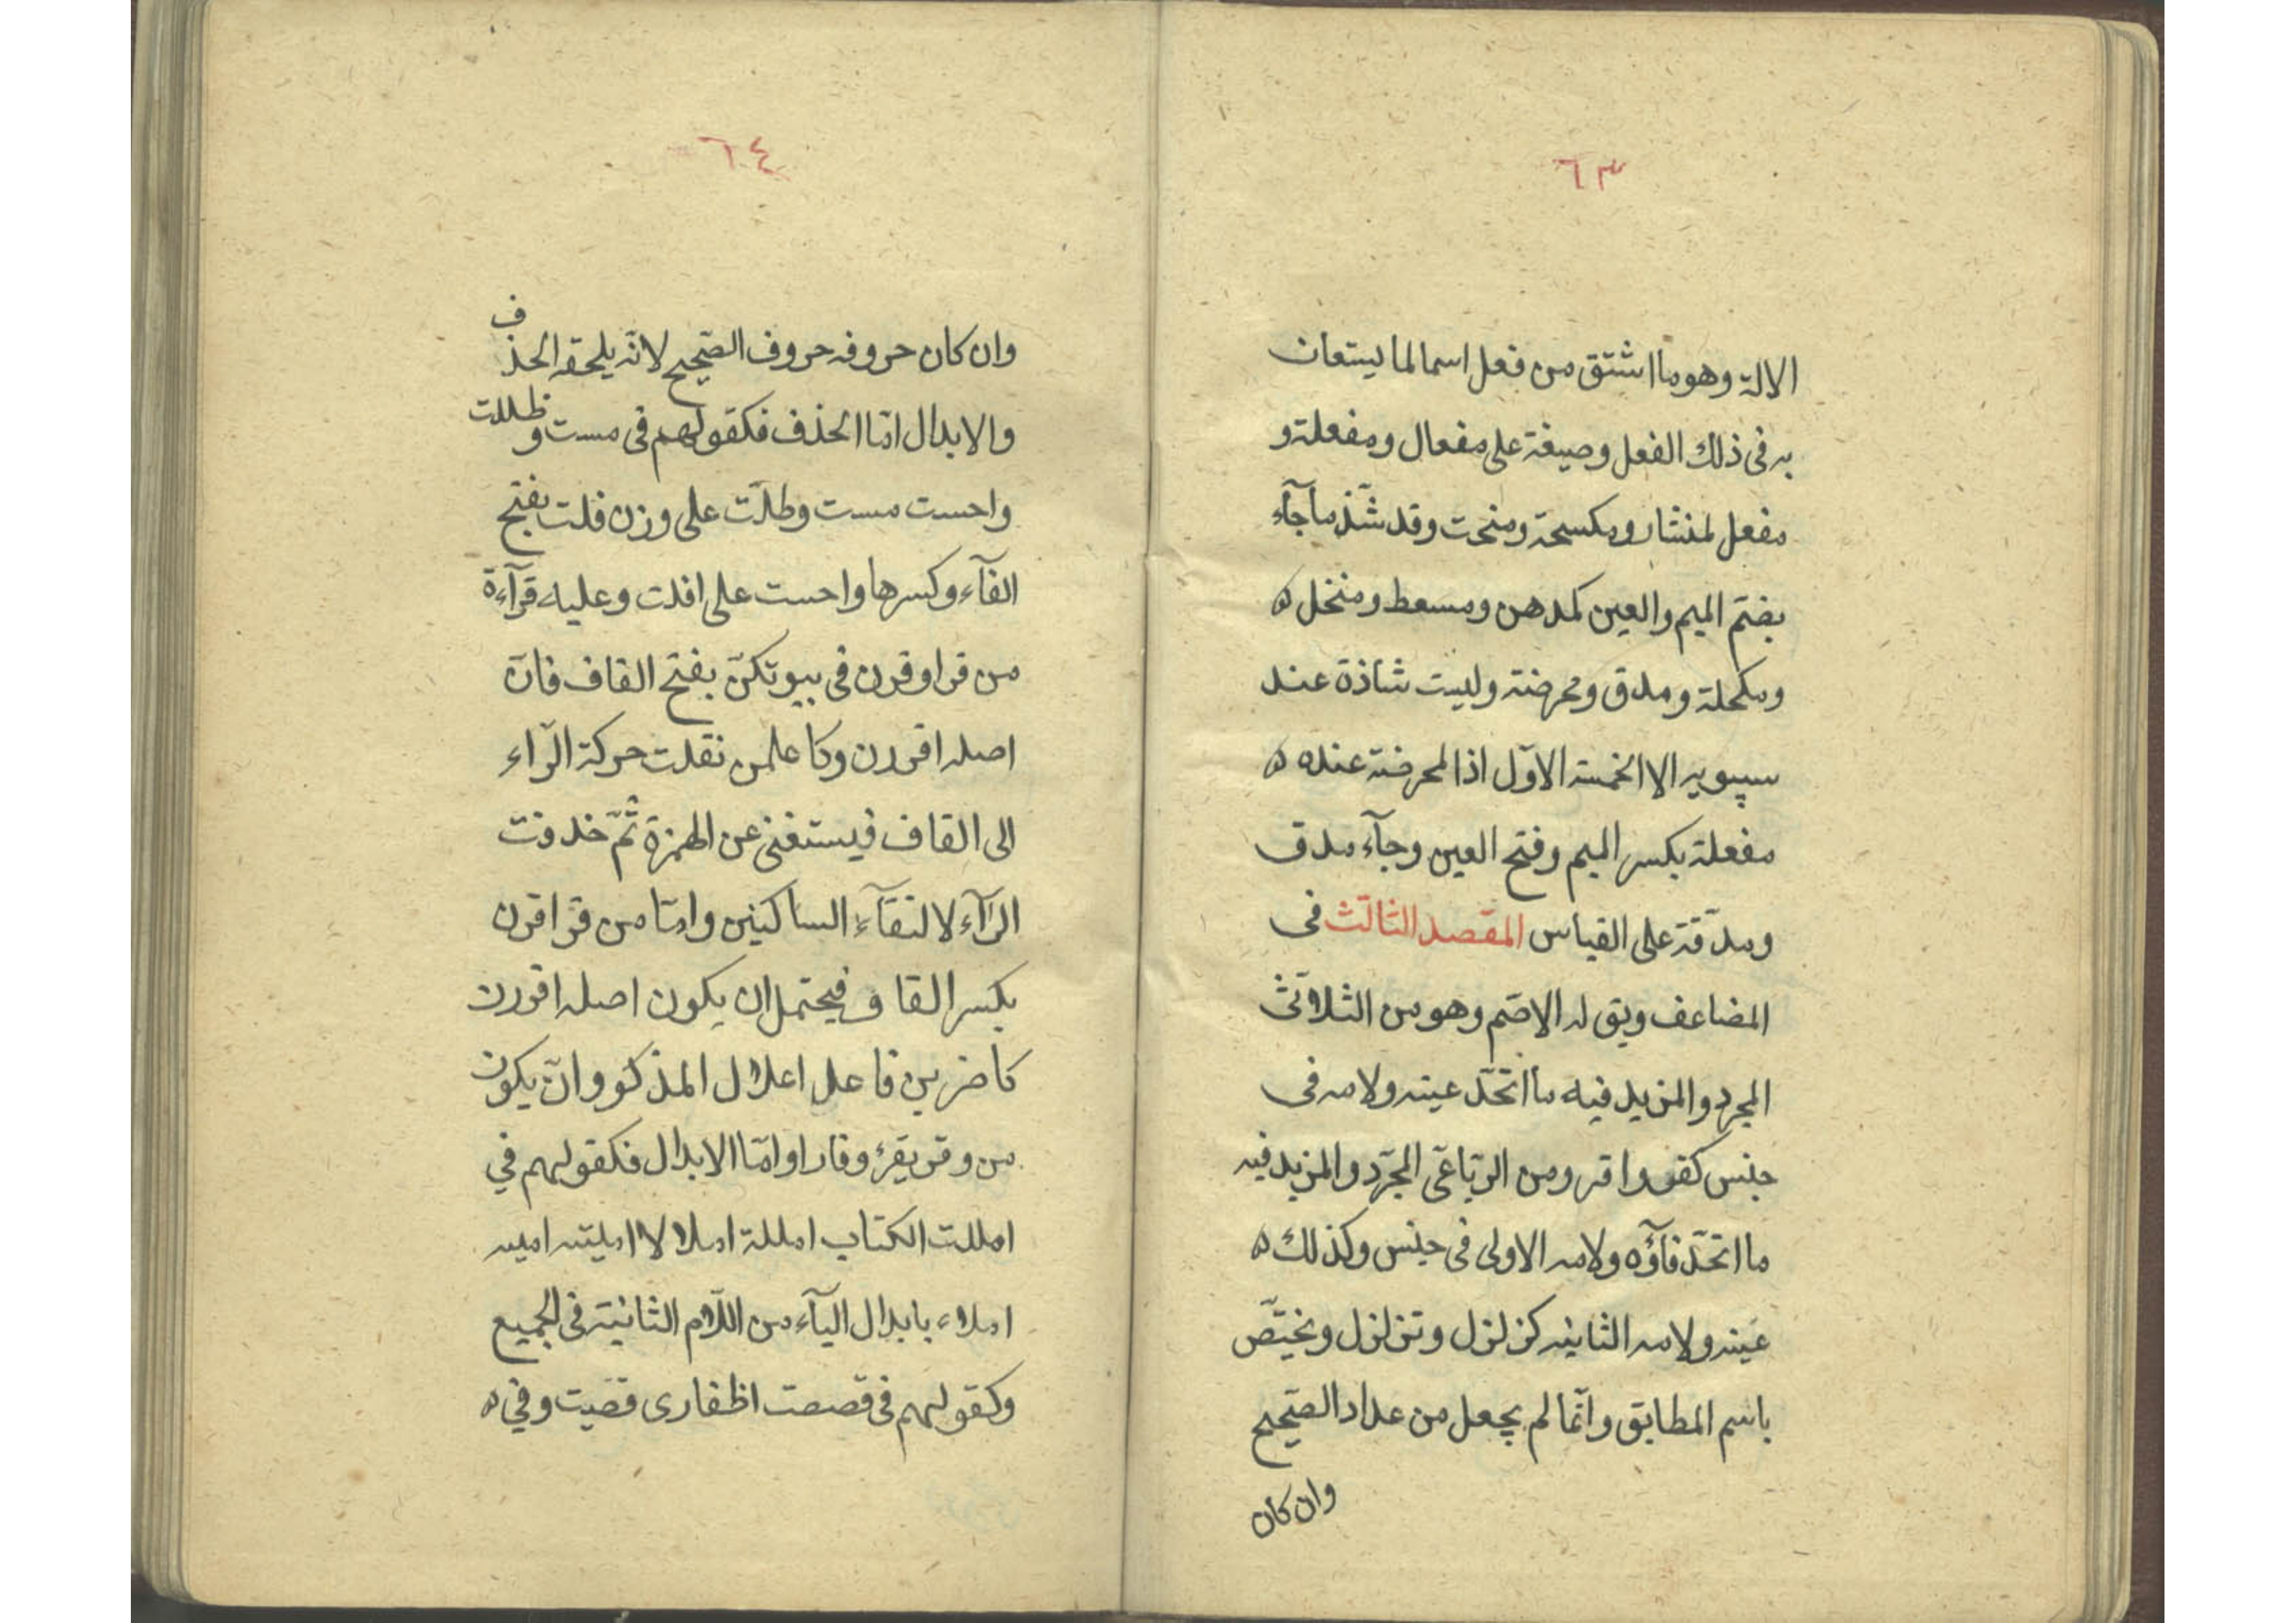 ٦٣
الالة وهو ما اشتق من فعل اسما لما يستعان
به فى ذلك الفعل وصيغة على مفعال ومفعلة و
مفعل لمنشار ومكسحة ومنحت وقد شّذ ما جآء
بضمّ الميم والعين كمدهن ومسعط ومنخل ه
ومكحلة ومدق ومحرضة وليست شاذة عند
سيبويه الا الخمسة الاوّل اذا المحرضة عنده ه
مفعلة بكسر الميم وفتح العين وجآء مدق
ومدقّة على القياس المقصد الثالث فى
المضاعف ويق له الاصّم وهو من الثلاثى
المجرد والمزيد فيه ما اتحّد عينه ولامه فى
جنس كفر واقر ومن الرباعى المجرّد والمزيد فيه
ما اتحّد فآؤه ولامه الاولى فى جنس وكذلك ه
عينه ولامه الثانيه كزلزل وتزلزل ويختّص
باسم المطابق وانّما لم يجعل من عداد الصّحيح
وان كان
٦٤
وان كان حروفه حروف الصّحيح لانّه يلحقه الحذف
والابدال امّا الحذف فكقولهم فى مست وظللت
واحست مست وظلّت على وزن فلت بفتح
الفآء وكسرها واحست على افلت وعليه قرآءة
من قرا وقرن فى بيوتكنّ بفتح القاف فانّ
اصله اقررن وكاعلمن نقلت حركة الرّاء
الى القاف فيستغنى عن الهمزة ثمّ خدفت
الرآء لالتقآء الساكنين وامّا من قرا قرن
بكسر القاف فيحتمل ان يكون اصله اقررن
كاضربن فاعل اعلال المذكور وانّ يكون
من وقر يقرء وقارا وامّا الابدال فكقولهم في
امللت الكتاب امللة املالا امليته امليه
املاء بابدال اليآء من اللّام الثانية فى الجميع
وكقولهم فى قصصت اظفارى قصّيت وفي ه